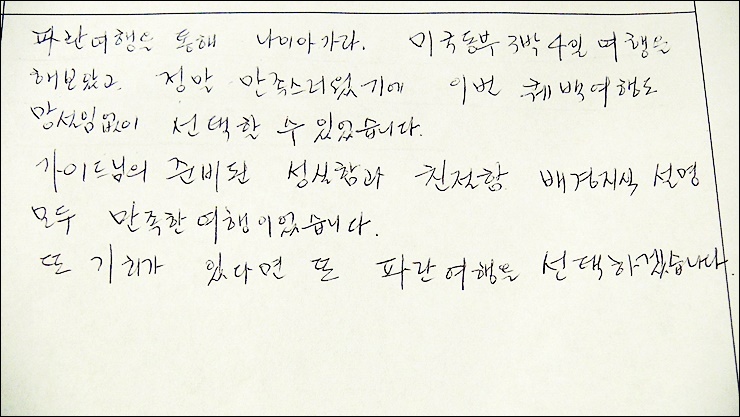 파란여행을 통해 나이아가라. 미국동부 3박4일 여행을
해보았고 정말 만족스러웠기에 이번 퀘백여행도
망설임없이 선택할 수 있었습니다.
가이드님의 준비된 성실함과 친절함 배경지식 설명
모두 만족한 여행이었습니다.
또 기회가 있다면 또 파란여행을 선택하겠습니다.